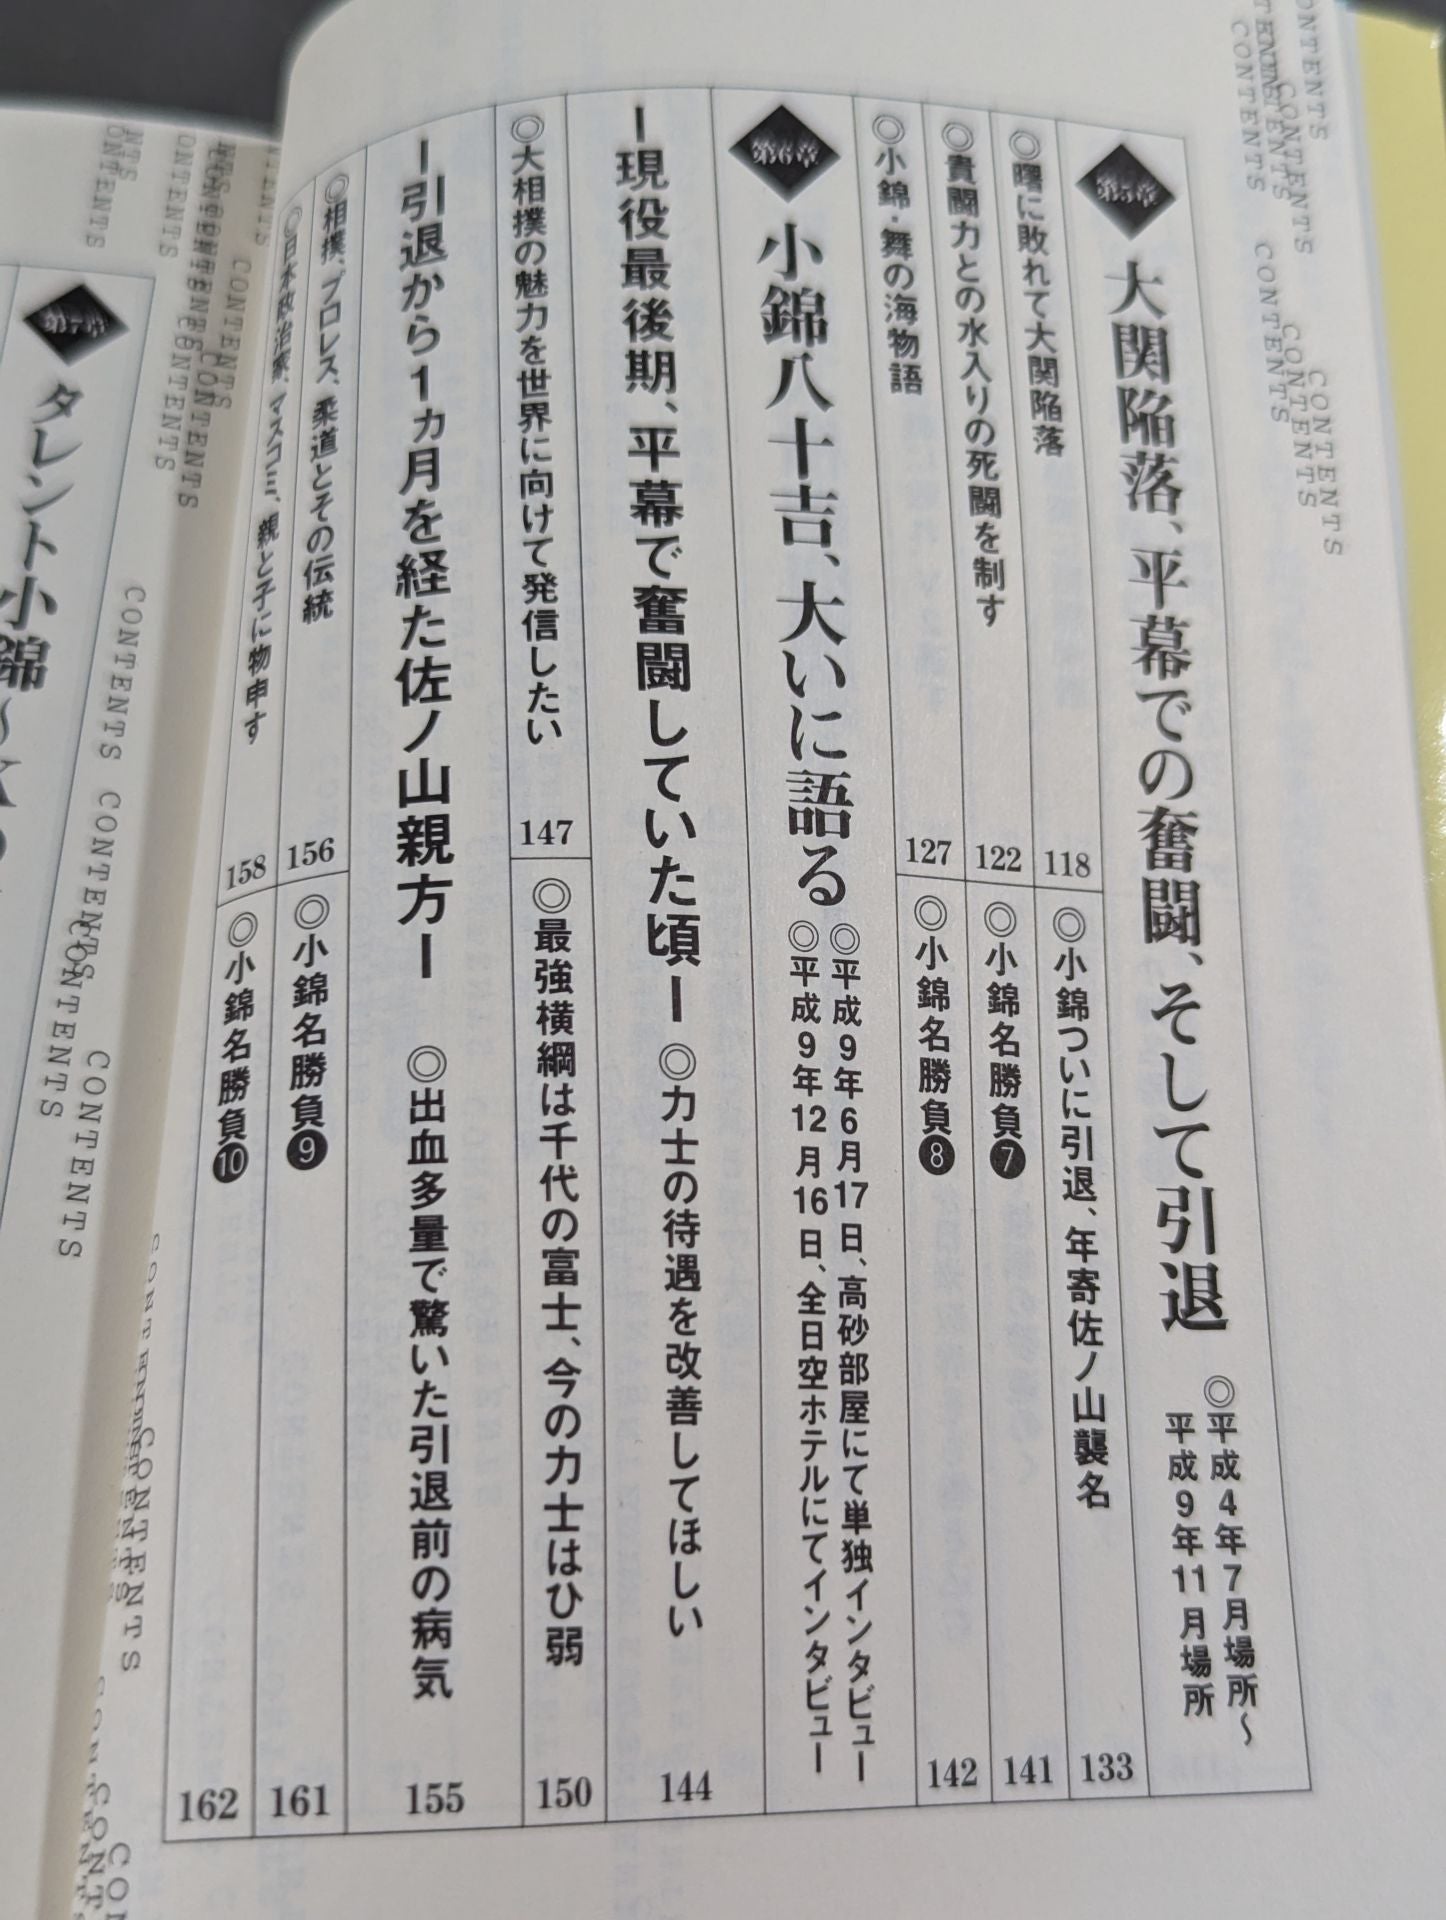 第5章
大関陥落、平幕での奮闘、そして引退
◎平成4年7月場所〜
平成9年11月場所
◎曙に敗れて大関陥落 118
◎小錦ついに引退、年寄佐ノ山襲名 133
◎貴闘力との水入りの死闘を制す 122
◎小錦名勝負❼ 141
◎小錦・舞の海物語 127
◎小錦名勝負❽ 142
第6章
小錦八十吉、大いに語る
◎平成9年6月17日、高砂部屋にて単独インタビュー
◎平成9年12月16日、全日空ホテルにてインタビュー
ー現役最後期、平幕で奮闘していた頃ー
◎力士の待遇を改善してほしい 144
◎大相撲の魅力を世界に向けて発信したい 147
◎最強横綱は千代の富士、今の力士はひ弱 150
ー引退から1カ月を経た佐ノ山親方ー
◎出血多量で驚いた引退前の病気 155
◎相撲、プロレス、柔道とその伝統 156
◎小錦名勝負❾ 161
◎日本政治家、マスコミ、親と子に物申す 158
◎小錦名勝負❿ 162
第7章
タレント小錦〜K
CONTENTS
CONTENTS
CONTENTS
CONTENTS
CONTENTS
CONTENTS
CONTENTS
CONTENTS
CONTENTS
CONTENTS
CONTENTS
CONTENTS
CONTENTS
CONTENTS